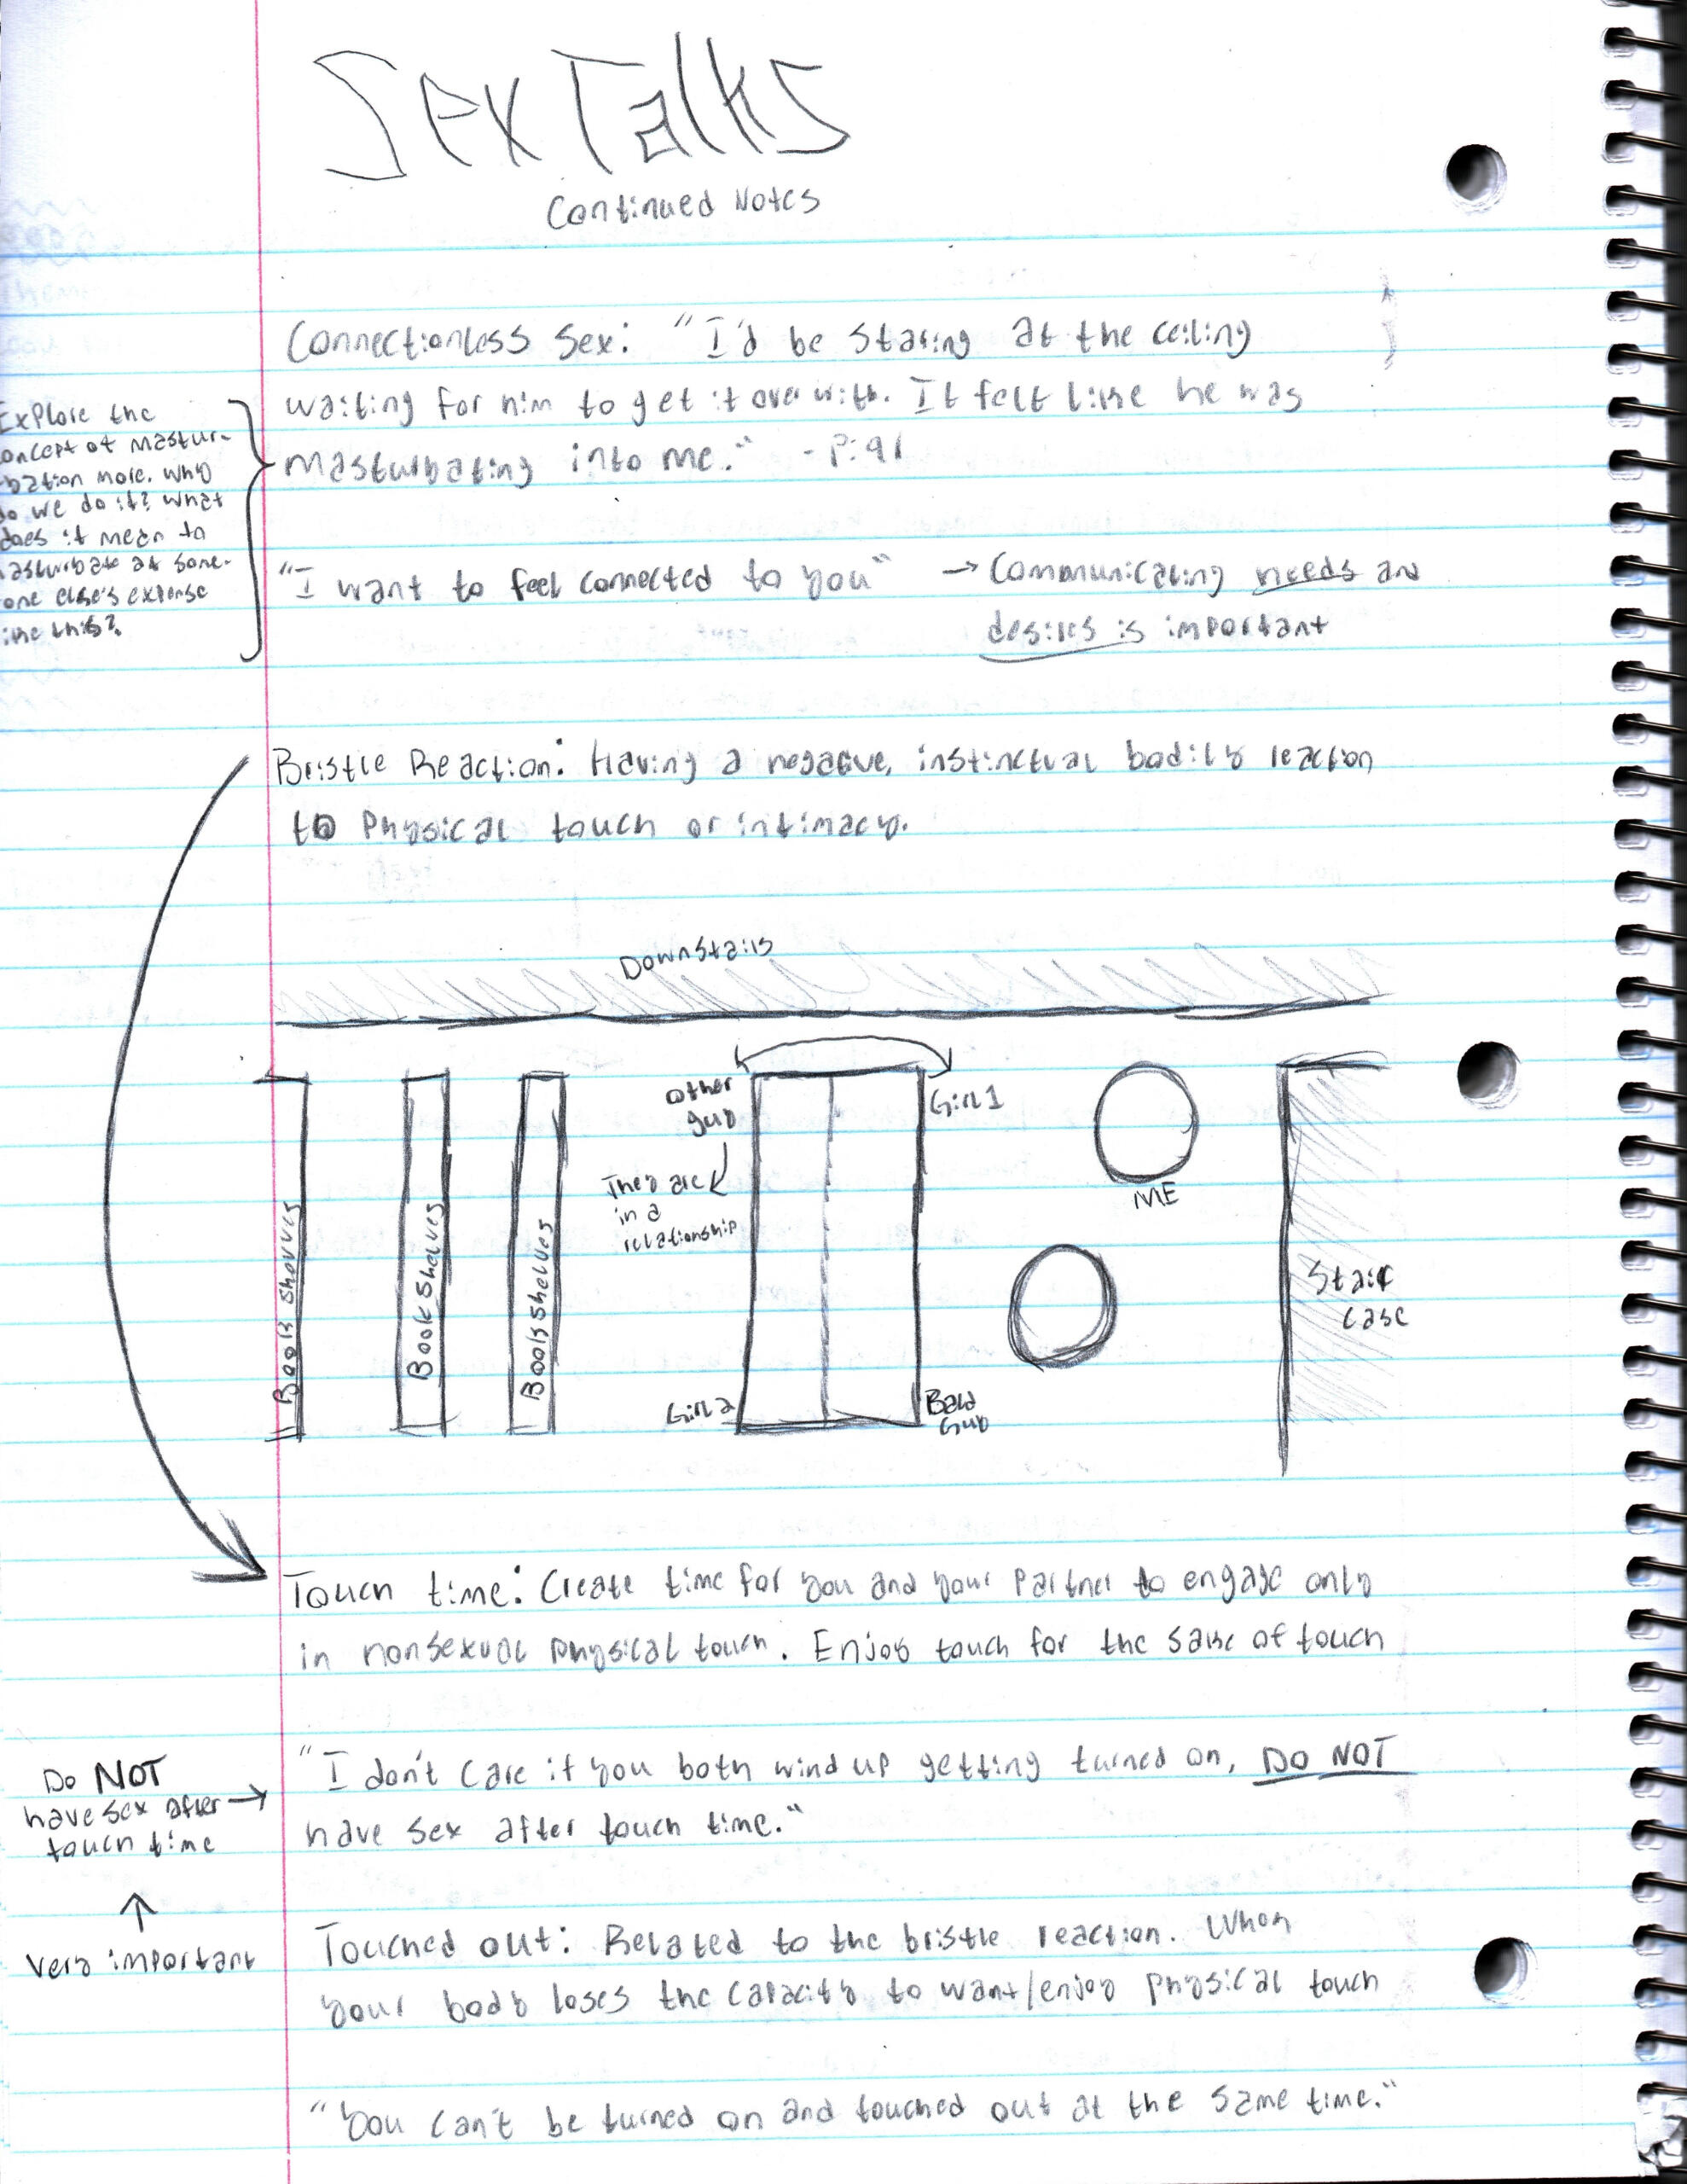 Sex Talks
Continued Notes
Connectionless Sex: "I'd be staring at the ceiling
waiting for him to get it over with. It felt like he was
masturbating into me." - P. 91
Explore the
concept of mastur-
bation more. Why
do we do it? What
does it mean to
masturbate at some-
one else's expense
like this?
"I want to feel connected to you" → Communicating needs and
desires is important
Bristle Reaction: Having a negative, instinctual bodily reaction
to physical touch or intimacy.
Downstairs
Other
guy
Girl 1
They are
in a
relationship
ME
Book Shelves
Book Shelves
Book Shelves
Stair
case
Girl 2
Bald
Guy
Touch time: Create time for you and your partner to engage only
in nonsexual physical touch. Enjoy touch for the sake of touch
Do NOT
have sex after →
touch time
"I don't care if you both wind up getting turned on, DO NOT
have sex after touch time."
↑
Very important
Touched out: Related to the bristle reaction. When
your body loses the capacity to want/enjoy physical touch
"You can't be turned on and touched out at the same time."